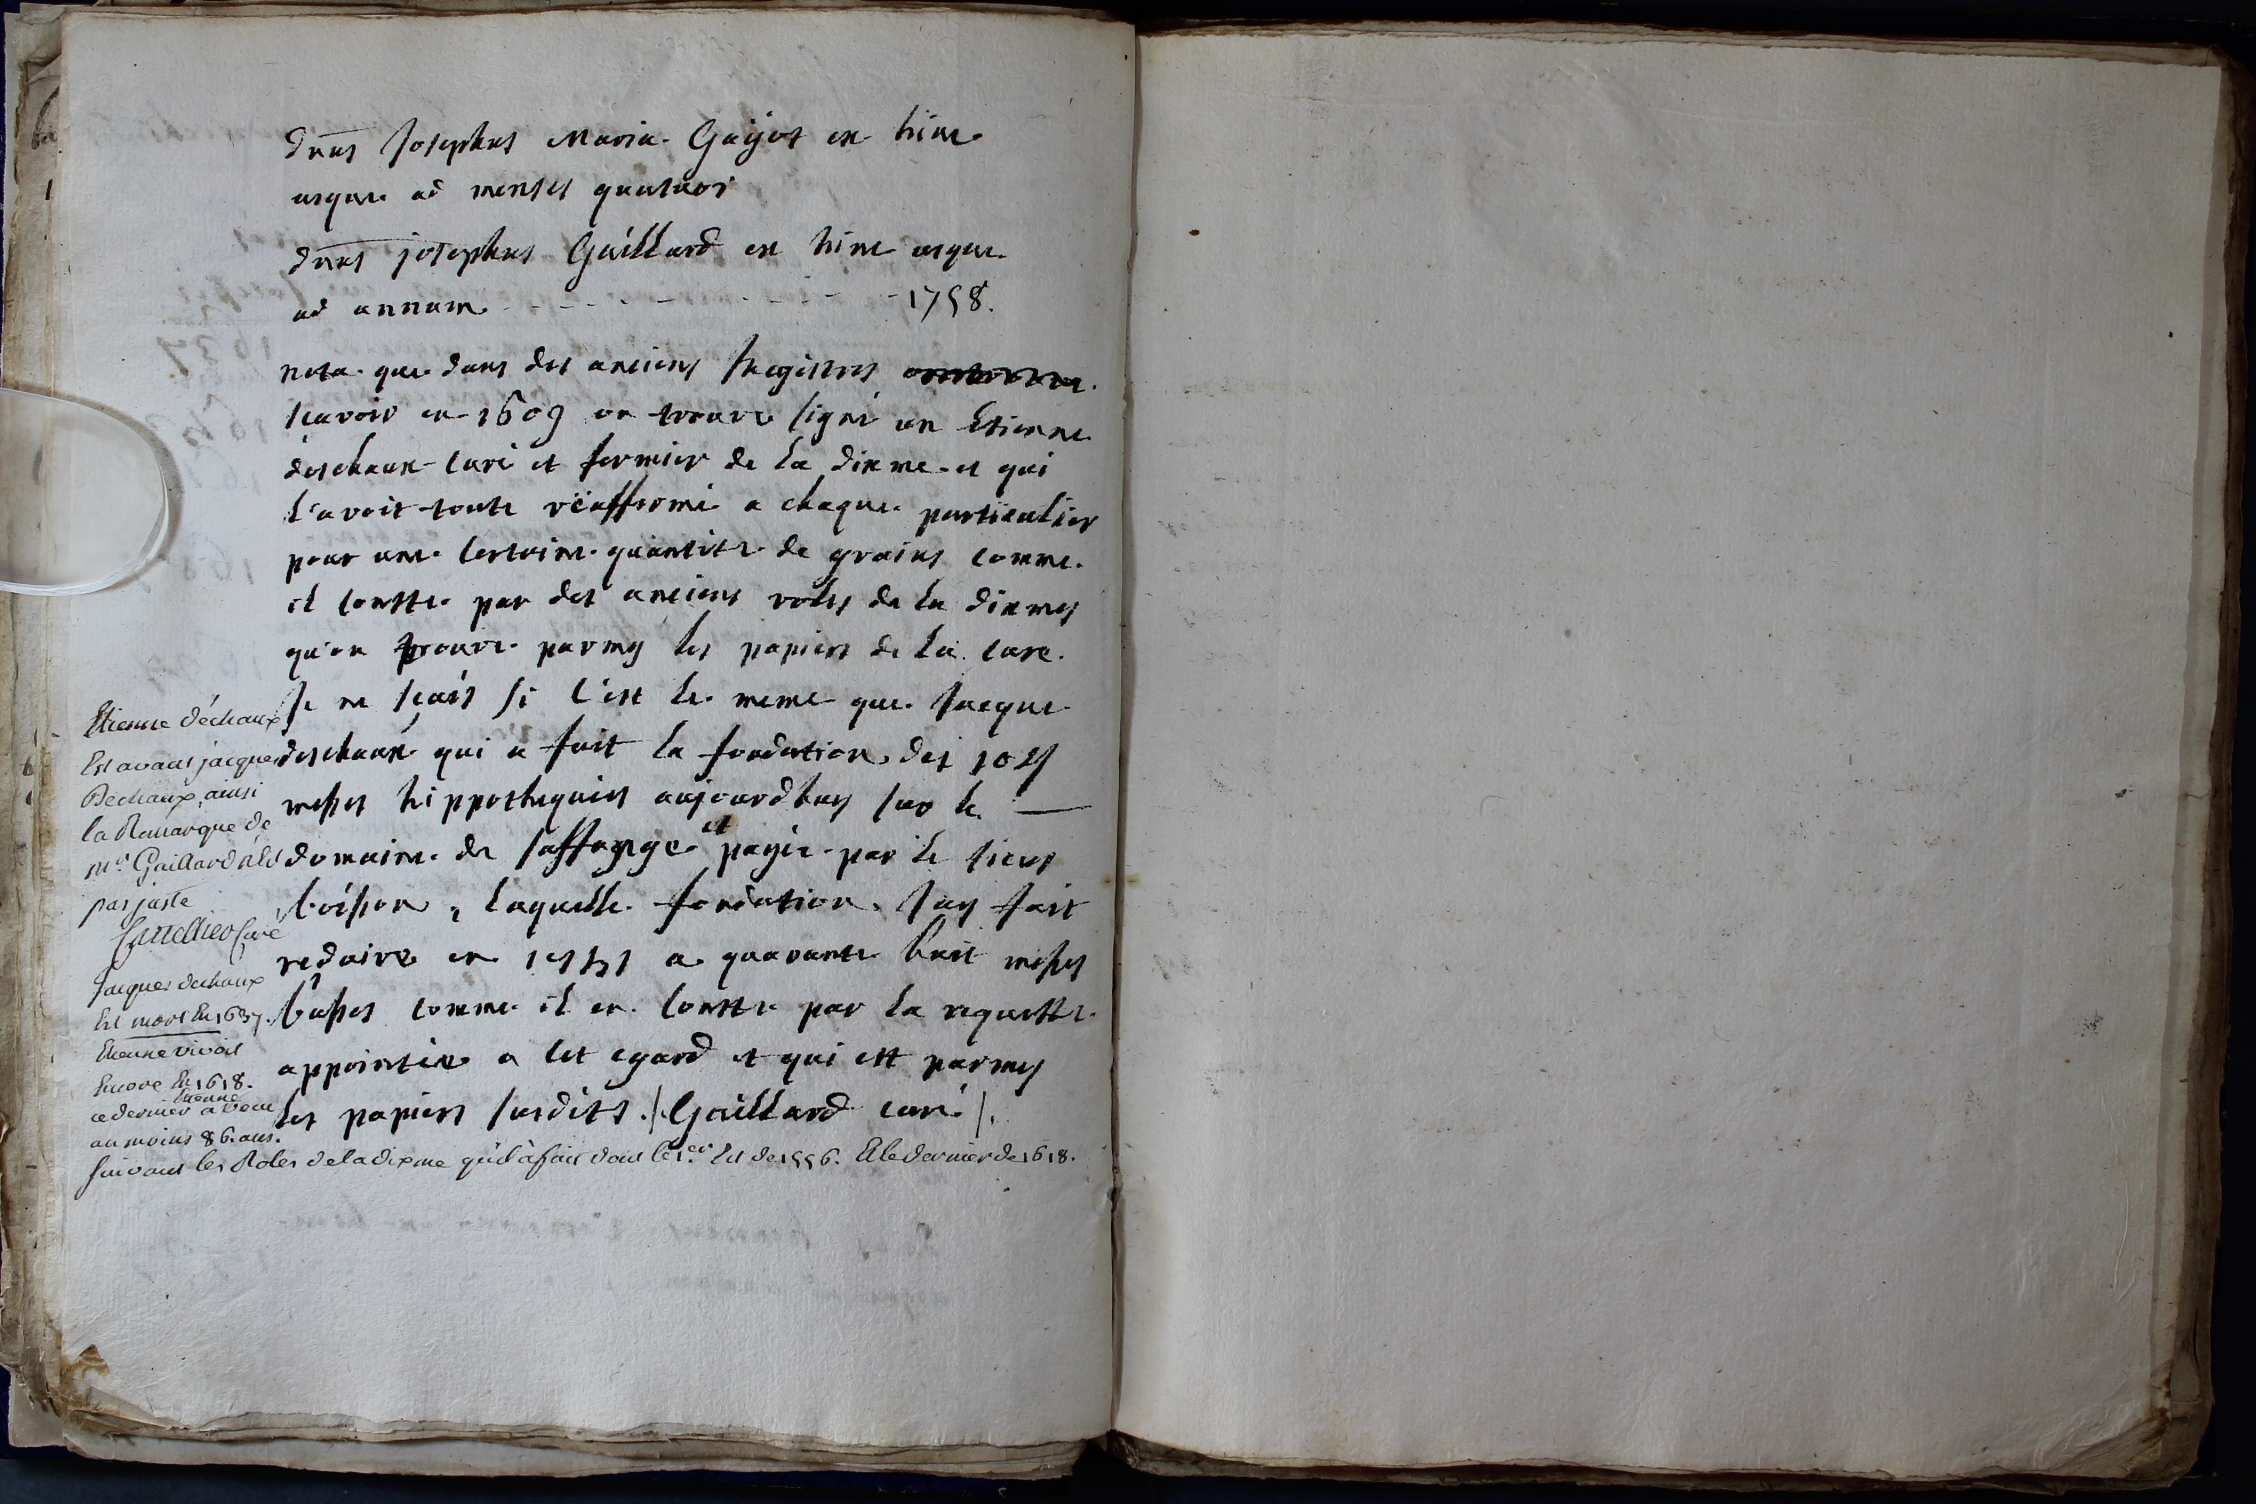 dnus Josephus Maria Guyot ex hinc
usque ad menses quatuor
dnus josephus Gaillard ex hinc usque
ad annum - - - - - - - - - - 1758.
nota que dans des anciens Registres
scavoir en 1609 on trouve signé un Etienne
deschaux curé et fermier de la dixme et qui
l'avoit toute réaffermé a chaque particulier
pour une certaine quantité de grains comme
il conste par des anciens roles de la dixmes
qu'on trouve parmy les papiers de la cure.
Je ne sçais si c'est le meme que Jacque
deschaux qui a fait la fondation des 104
messes hippothequées aujourdhuy sur le —
domaine de et payée par le sieur
boisson, laquelle fondation J'ay fait
reduire en a quarante huit messes
basses comme il en conste par la requette
appointée a cet egard et qui est parmy
les papiers susdits ./. Gaillard curé /.
Etienne déchaux
Est avant jacques
Dechaux, ainsi
la Remarque de
Mr. Gaillard n'est
pas juste
curé
Jacques dechaux
Est mort En 1637.
Etienne vivoit
Encore En 1618.
ce dernier Etienne a vecu
au moins 86. ans.
suivant les Roles de la dixme qu'il a fait dont le 1.er Est de 1556. Et le dernier de 1618.